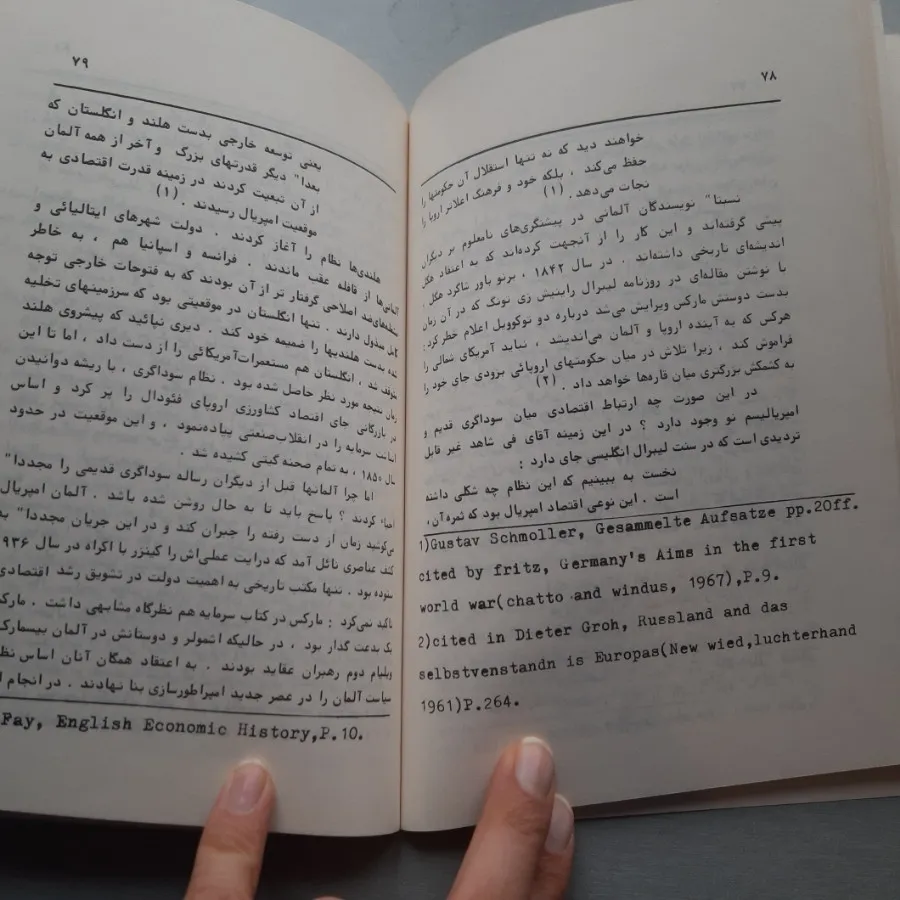 ۷۸
خواهند دید که نه تنها استقلال آن حکومتها را
حفظ می‌کند ، بلکه خود و فرهنگ اعلاتر اروپا را
نجات می‌دهد . (۱)
نسبتا" نویسندگان آلمانی در پیشگری‌های نامعلوم بر دیگران
پیشی گرفته‌اند و این کار را از آنجهت کرده‌اند که به اعتقاد هگل
اندیشه‌ای تاریخی داشته‌اند . در سال ۱۸۴۲ ، برنو باور شاگرد هگل ،
با نوشتن مقاله‌ای در روزنامه لیبرال راینیش زی تونگ که در آن زمان
بدست دوستش مارکس ویرایش می‌شد درباره دو توکوویل اعلام خطر کرد :
هرکس که به آینده اروپا و آلمان می‌اندیشد ، نباید آمریکای شمالی را
فراموش کند ، زیرا تلاش در میان حکومتهای اروپائی بزودی جای خود را
به کشمکش بزرگتری میان قاره‌ها خواهد داد . (۲)
در این صورت چه ارتباط اقتصادی میان سوداگری قدیم و
امپریالیسم نو وجود دارد ؟ در این زمینه آقای فی شاهد غیر قابل
تردیدی است که در سنت لیبرال انگلیسی جای دارد :
نخست به ببینیم که این نظام چه شکلی داشته
است . این نوعی اقتصاد امپریال بود که ثمره آن ،
1)Gustav Schmoller, Gesammelte Aufsatze pp.20ff.
cited by fritz, Germany's Aims in the first
world war(chatto and windus, 1967),P.9.
2)cited in Dieter Groh, Russland and das
selbstvenstandn is Europas(New wied,luchterhand
1961)P.264.
۷۹
یعنی توسعه خارجی بدست هلند و انگلستان که
بعدا" دیگر قدرتهای بزرگ و آخر از همه آلمان
از آن تبعیت کردند در زمینه قدرت اقتصادی به
موقعیت امپریال رسیدند . (۱)
هلندی‌ها نظام را آغاز کردند . دولت شهرهای ایتالیائی و
آلمانی‌ها از قافله عقب ماندند . فرانسه و اسپانیا هم ، به خاطر
اصلاحی گرفتار تر از آن بودند که به فتوحات خارجی توجه
کامل مبذول دارند . تنها انگلستان در موقعیتی بود که سرزمینهای تخلیه
شده بدست هلندیها را ضمیمه خود کند . دیری نپائید که پیشروی هلند
متوقف شد ، انگلستان هم مستعمرات آمریکائی را از دست داد ، اما تا این
زمان نتیجه مورد نظر حاصل شده بود . نظام سوداگری ، با ریشه دوانیدن
در بازرگانی جای اقتصاد کشاورزی اروپای فئودال را پر کرد و اساس
انباشت سرمایه را در انقلاب صنعتی پیاده نمود ، و این موقعیت در حدود
سال ۱۸۵۰ ، به تمام صحنه گیتی کشیده شد .
اما چرا آلمانها قبل از دیگران رساله سوداگری قدیمی را مجددا"
احیاء کردند ؟ پاسخ باید تا به حال روشن شده باشد . آلمان امپریال
می‌کوشید زمان از دست رفته را جبران کند و در این جریان مجددا" به
کشف عناصری نائل آمد که درایت عملی‌اش را کینزر با اکراه در سال ۹۳۶
ستوده بود . تنها مکتب تاریخی به اهمیت دولت در تشویق رشد اقتصادی
تاکید نمی‌کرد : مارکس در کتاب سرمایه هم نظرگاه مشابهی داشت .
یک بدعت گذار بود ، در حالیکه اشمولر و دوستانش در آلمان بیسمارک
ویلیام دوم رهبران عقاید بودند . به اعتقاد همگان آنان اساس
سیاست آلمان را در عصر جدید امپراطورسازی بنا نهادند . در انجام
Fay, English Economic History,P.10.